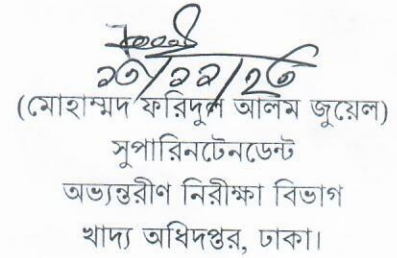 (মোহাম্মদ ফরিদুল আলম জুয়েল)
সুপারিনটেনডেন্ট
অভ্যন্তরীণ নিরীক্ষা বিভাগ
খাদ্য অধিদপ্তর, ঢাকা।